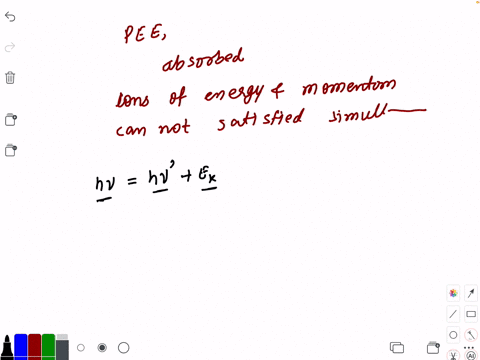 PEE,
absorbed
of energy & momentum
can not satisfied simull
hν = hν' + Ek